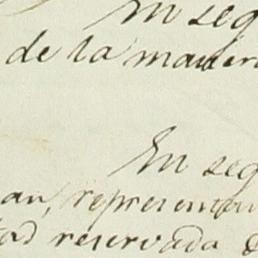 En seg
de la mader
En seg
an, represen
tad reservada